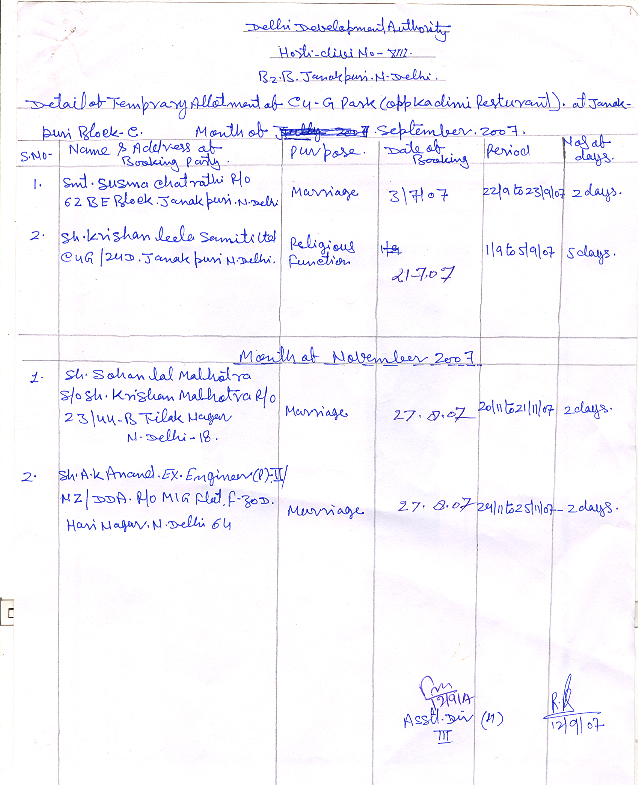 Delhi Development Authority
Horti-divi No-VIII.
B2.B. Janakpuri. N. Delhi.
Detail of Temprary Allotment of C4-G Park (opp Kadimi Resturant). at Janak-
puri Block-C. Month of September. 2007.
S.No- Name & Address of Booking Party. Purpose. Date of Booking Period No of days.
1. Smt. Susma Chatrathi R/o Marriage 3/7/07 22/9 to 23/9/07 2 days.
62 BE Block. Janakpuri. N. Delhi
2. Sh. Krishan leela Samiti Ltd Religious 1/9 to 5/9/07 5 days.
C4G/24D. Janakpuri N. Delhi. function
21-7.07
Month of November 2007
1. Sh. Sohan lal Malhotra
S/o Sh. Krishan Malhotra R/o Marriage 27.8.07 20/11 to 21/11/07 2 days.
23/44-B Tilak Nagar
N. Delhi-18.
2. Sh. A.K Anand. EX. Engineer (P)-II/
NZ/DDA. R/o MIG flat, F-30D. Marriage 27.8.07 24/11 to 25/11/07- 2 days.
Hari Nagar. N. Delhi 64
Asstt. Dir (H)
III
12/9/07